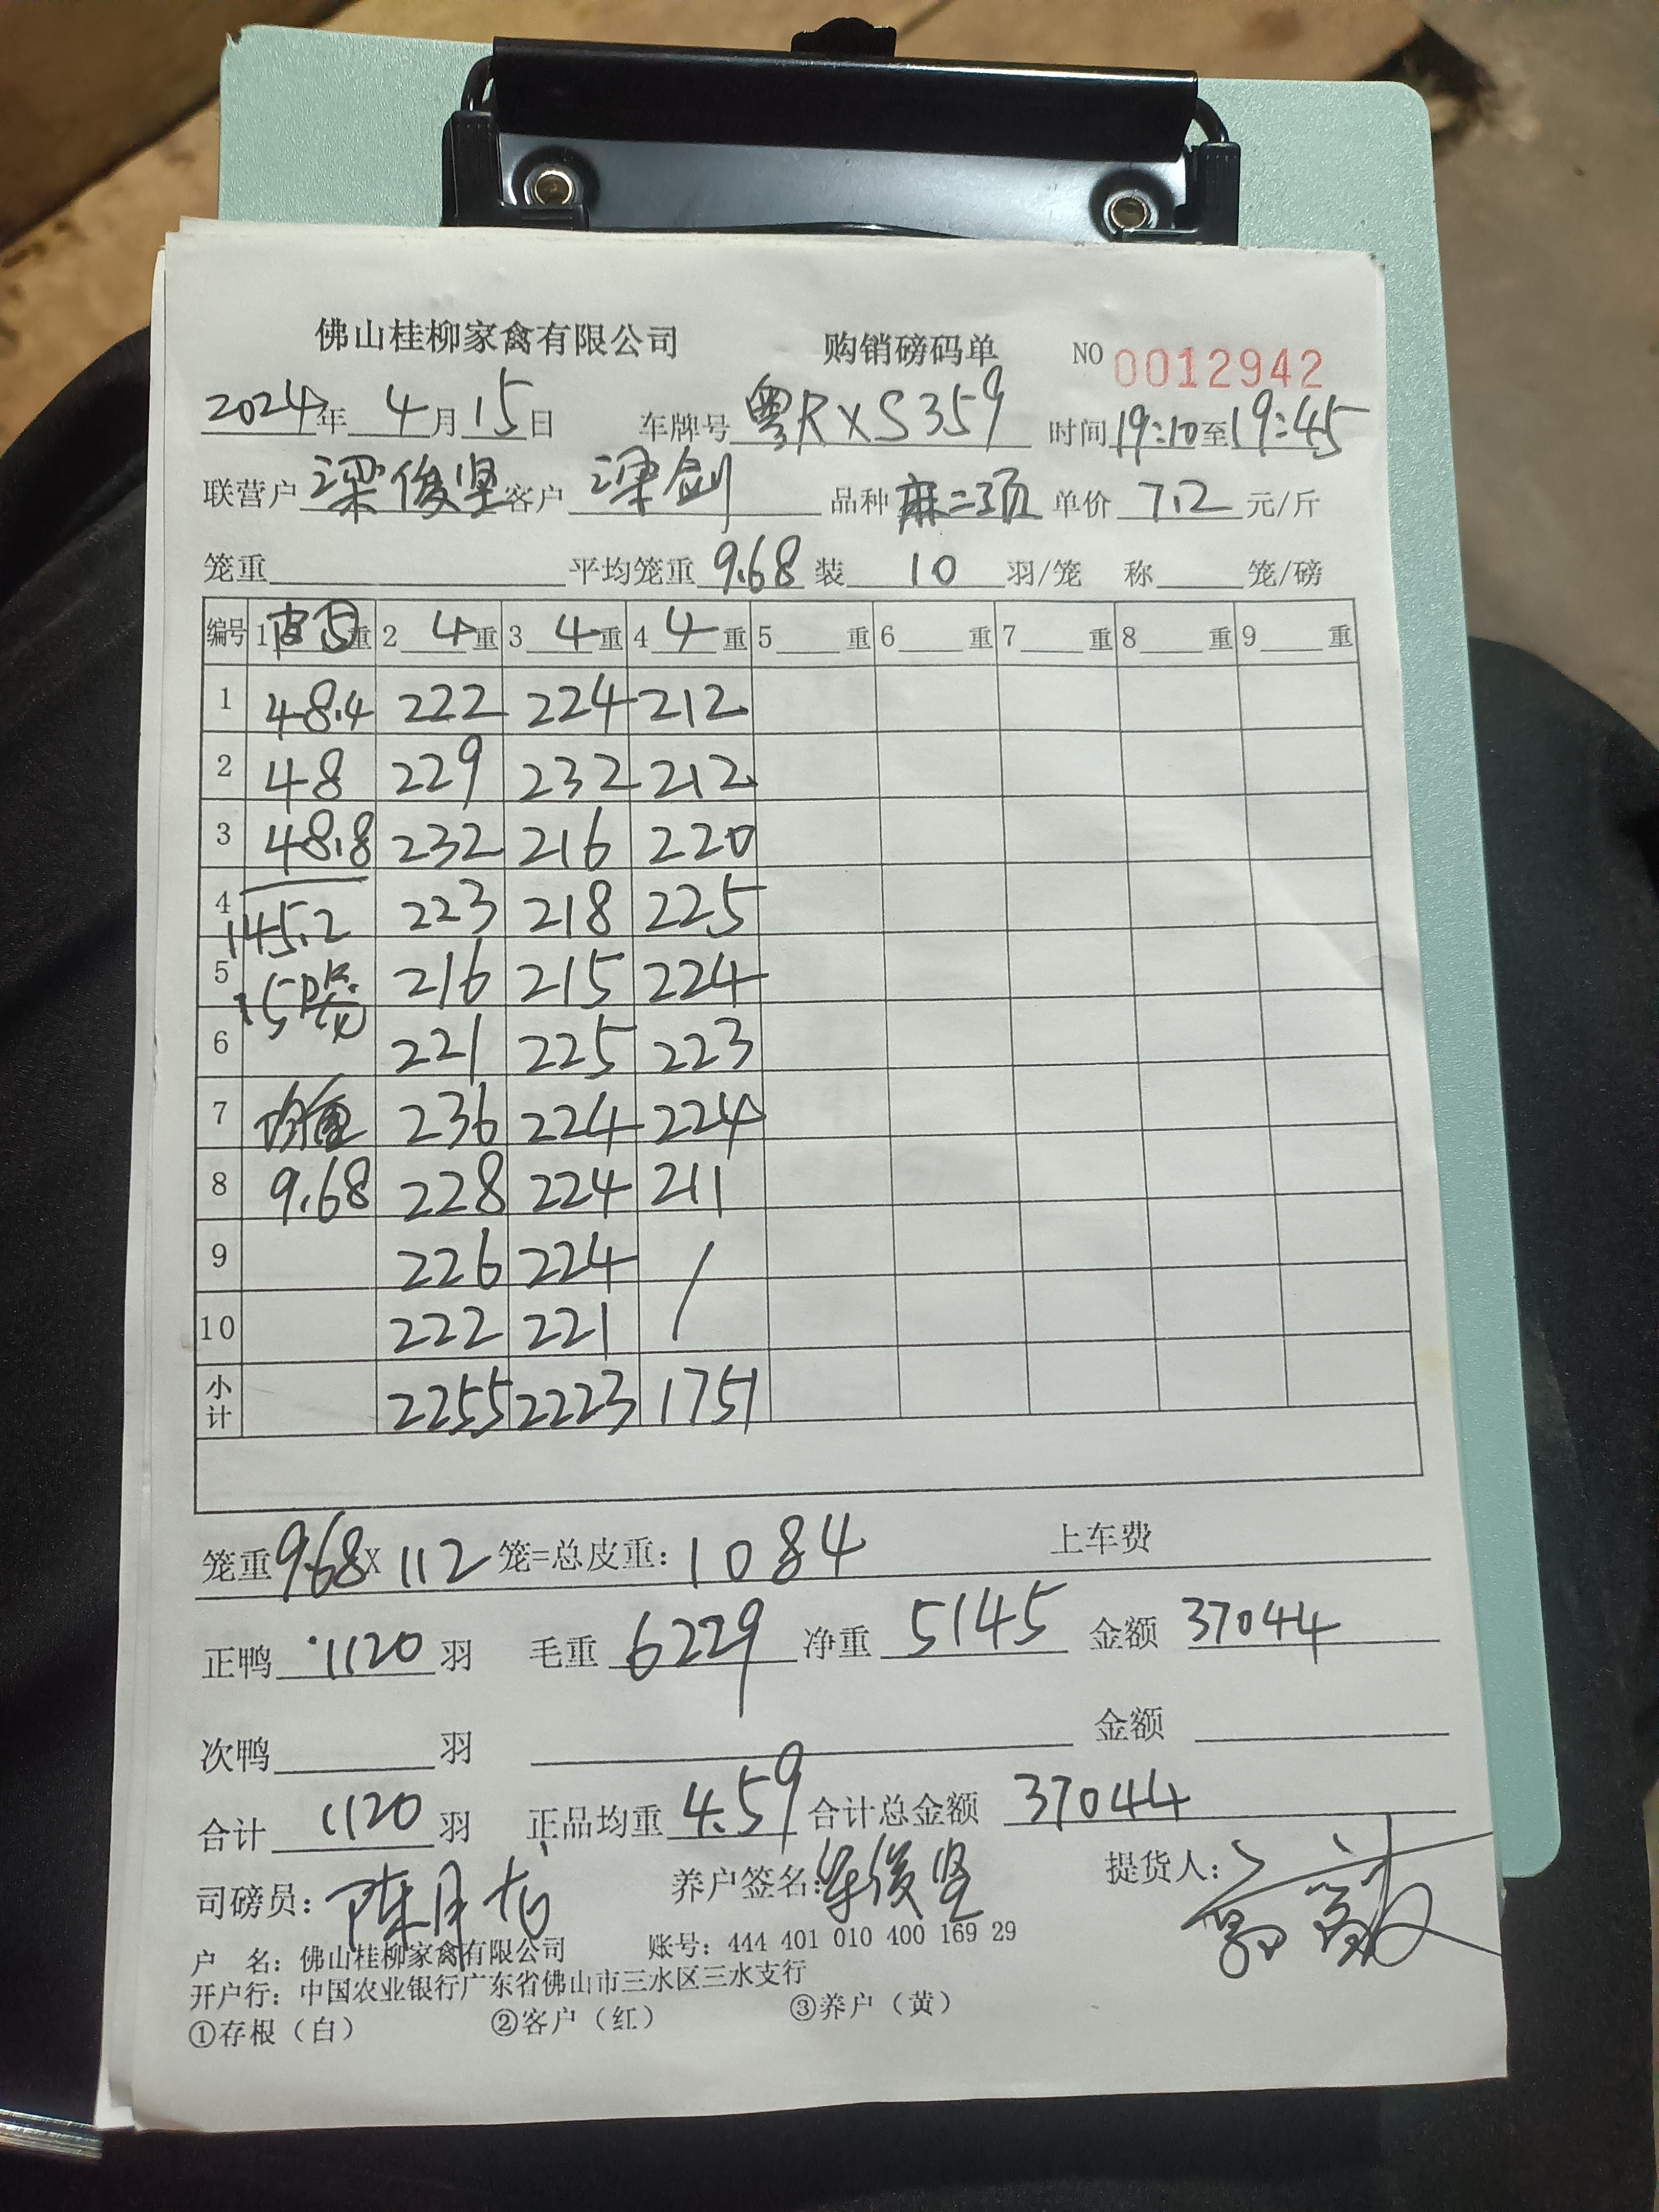 佛山桂柳家禽有限公司 购销磅码单 NO 0012942
2024年 4月15日 车牌号 粤RXS359 时间19:10至19:45
联营户 梁俊坚 客户 梁剑 品种 麻二项 单价 7.2 元/斤
笼重 平均笼重 9.68 装 10 羽/笼 称 笼/磅
编号 1 皮⑤ 重 2 4 重 3 4 重 4 4 重 5 重 6 重 7 重 8 重 9 重
1 48.4 222 224 212
2 48 229 232 212
3 48.8 232 216 220
4 145.2 223 218 225
5 15 216 215 224
6 221 225 223
7 均重 236 224 224
8 9.68 228 224 211
9 226 224 /
10 222 221
小计 2255 2223 1751
笼重 9.68 X 112 笼=总皮重: 1084 上车费
正鸭 1120 羽 毛重 6229 净重 5145 金额 37044
次鸭 羽 金额
合计 1120 羽 正品均重 4.59 合计总金额 37044
司磅员: 陈月 养户签名: 俊坚 提货人:
户 名: 佛山桂柳家禽有限公司 账号: 444 401 010 400 169 29
开户行: 中国农业银行广东省佛山市三水区三水支行
①存根(白) ②客户(红) ③养户(黄)